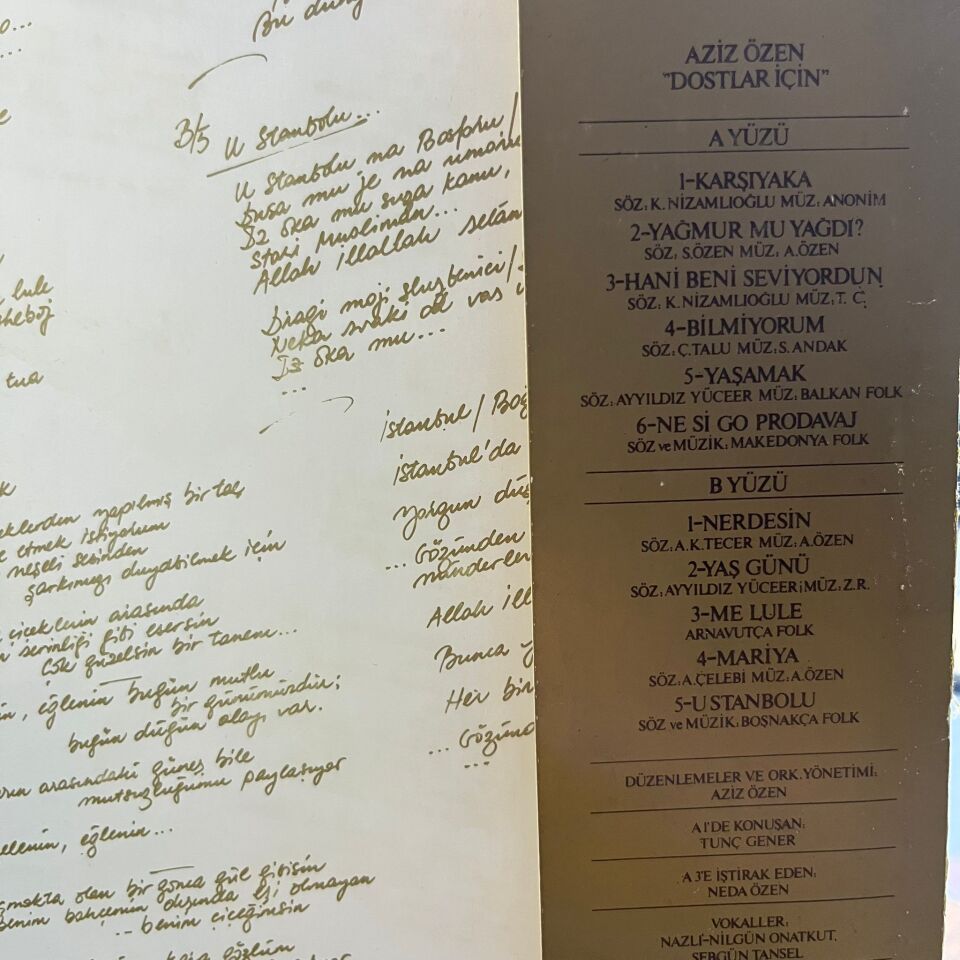 Bu
B/5 U Stanbolu...
U Stanbolu na Bosforu /
Iz oka mu suza kanu,
Stari Musliman...
Allah illallah selam
Dragi moji
Neka svaki od vas
Iz oka mu...
...
lule
tua
İstanbul / Boğ
İstanbul'da
Yorgun düş
... Gözünden
Allah ill
Bunca
Her bir
... Gözünd
...
yapılmış bir taç
etmek istiyorum
neşeli sesinden
şarkımızı duyabilmek için
çiçeklerin arasında
serinliği gibi esersin
Çok güzelsin bir tanem...
eğlenin bugün mutlu
bir günümüzdür;
bugün düğün olayı var.
arasındaki güneş bile
mutsuzluğumu paylaşıyor
eğlenin...
olan bir gonca gül gibisin
benim bahçemin dışında eşi olmayan
... benim çiçeğimsin
AZİZ ÖZEN
"DOSTLAR İÇİN"
A YÜZÜ
1-KARŞIYAKA
SÖZ: K. NİZAMLIOĞLU MÜZ: ANONİM
2-YAĞMUR MU YAĞDI?
SÖZ: S.ÖZEN MÜZ: A.ÖZEN
3-HANİ BENİ SEVİYORDUN
SÖZ: K. NİZAMLIOĞLU MÜZ: T. Ç.
4-BİLMİYORUM
SÖZ: Ç.TALU MÜZ: S.ANDAK
5-YAŞAMAK
SÖZ: AYYILDIZ YÜCEER MÜZ: BALKAN FOLK
6-NE SI GO PRODAVAJ
SÖZ ve MÜZİK: MAKEDONYA FOLK
B YÜZÜ
1-NERDESİN
SÖZ: A.K.TECER MÜZ: A.ÖZEN
2-YAŞ GÜNÜ
SÖZ: AYYILDIZ YÜCEER; MÜZ: Z.R.
3-ME LULE
ARNAVUTÇA FOLK
4-MARİYA
SÖZ: A.ÇELEBİ MÜZ: A.ÖZEN
5-U STANBOLU
SÖZ ve MÜZİK: BOŞNAKÇA FOLK
DÜZENLEMELER VE ORK. YÖNETİMİ:
AZİZ ÖZEN
A 1'DE KONUŞAN:
TUNÇ GENER
A 3'E İŞTİRAK EDEN:
NEDA ÖZEN
VOKALLER:
NAZLI-NİLGÜN ONATKUT,
SEBGÜN TANSEL